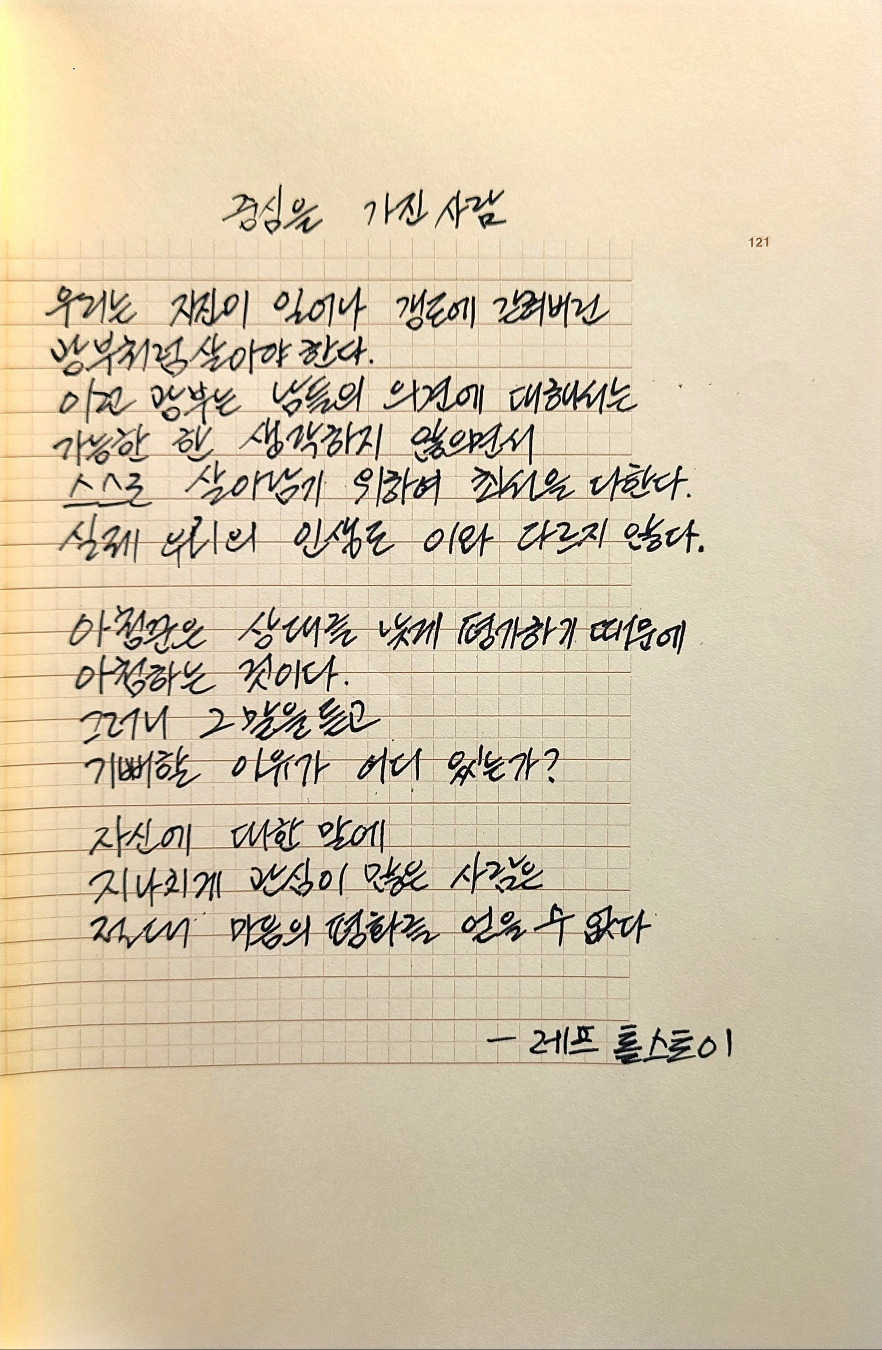 중심을 가진 사람
121
우리는 지진이 일어나 갱도에 갇혀버린
광부처럼 살아야 한다.
이런 광부는 남들의 의견에 대해서는
가능한 한 생각하지 않으면서
스스로 살아남기 위하여 최선을 다한다.
실제 우리의 인생도 이와 다르지 않다.
아첨꾼은 상대를 낮게 평가하기 때문에
아첨하는 것이다.
그러니 그 말을 듣고
기뻐할 이유가 어디 있는가?
자신에 대한 말에
지나치게 관심이 많은 사람은
절대 마음의 평화를 얻을 수 없다
- 레프 톨스토이